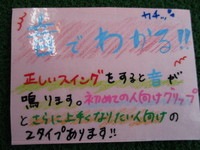 カチッ
音でわかる!!
正しいスイングをすると音が
鳴ります。初めての人向けグリップ
とさらに上手くなりたい人向けの
2タイプあります!!